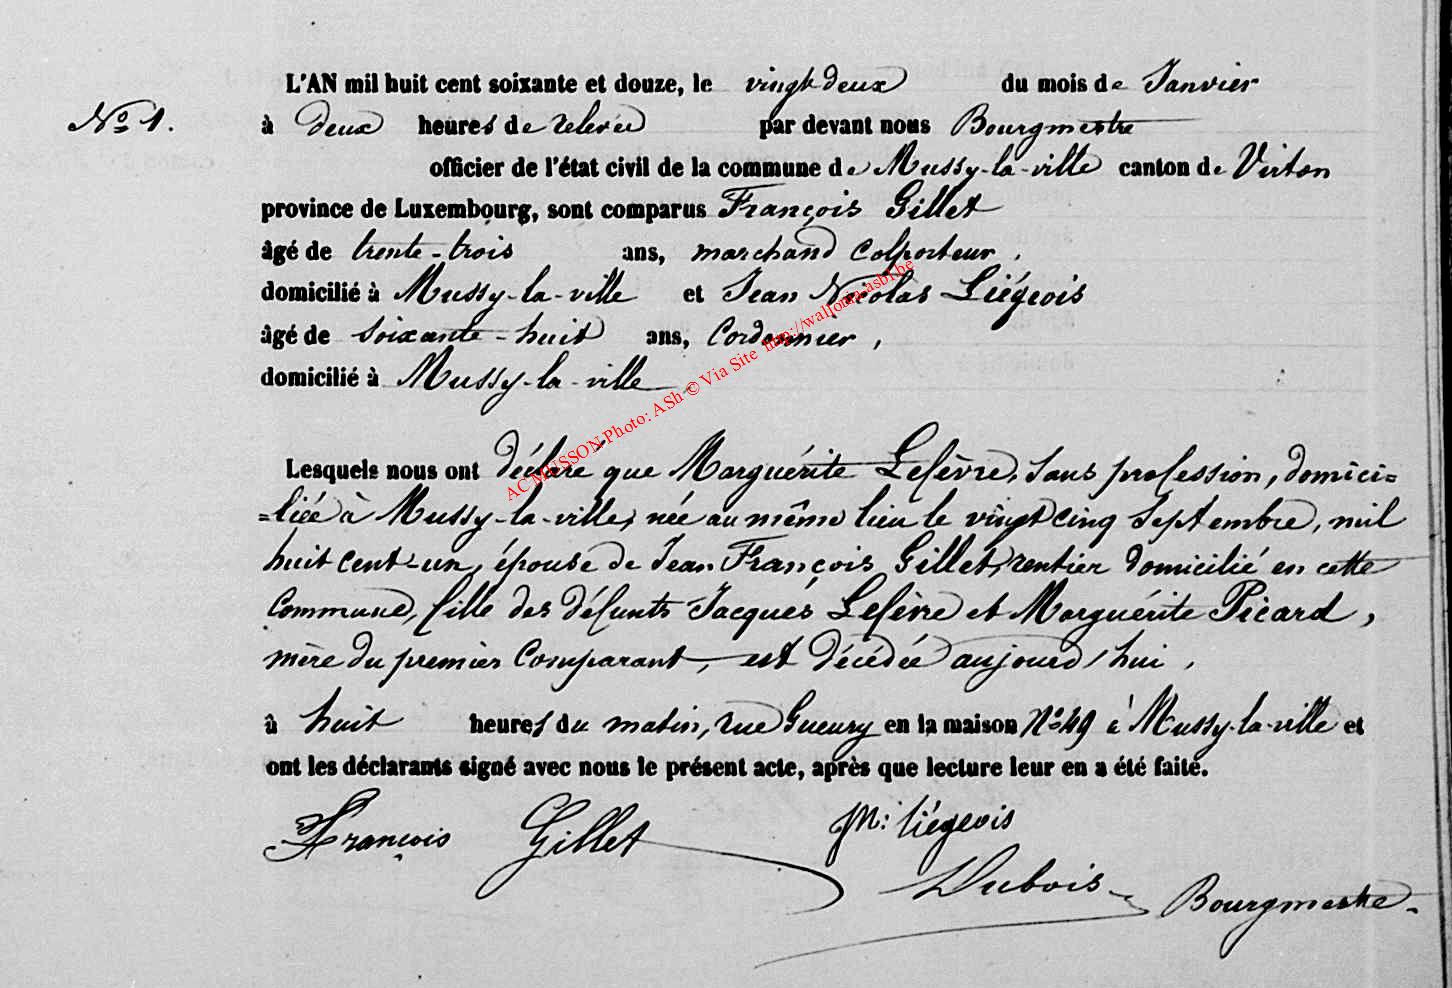 L'AN mil huit cent soixante et douze, le vingt deux du mois de Janvier
N° 1. à deux heures de relevée par devant nous Bourgmestre
officier de l'état civil de la commune de Mussy-la-ville canton de Virton
province de Luxembourg, sont comparus François Gillet
âgé de trente-trois ans, marchand colporteur,
domicilié à Mussy-la-ville et Jean Nicolas Liégeois
âgé de soixante-huit ans, Cordonnier,
domicilié à Mussy-la-ville.
AC MUSSON Photo: ASh © Via Site http://wallonia-asbl.be
Lesquels nous ont déclaré que Marguérite Lefèvre, sans profession, domici=
=liée à Mussy-la-ville, née au même lieu le vingt cinq Septembre, mil
huit cent-un, épouse de Jean François Gillet, rentier domicilié en cette
Commune, fille des défunts Jacques Lefèvre et Marguérite Picard,
mère du premier Comparant, est décédée aujourd'hui,
à huit heures du matin, rue Gueury en la maison N° 49 à Mussy-la-ville et
ont les déclarants signé avec nous le présent acte, après que lecture leur en a été faite.
François Gillet
Liégeois
Dubois Bourgmestre.